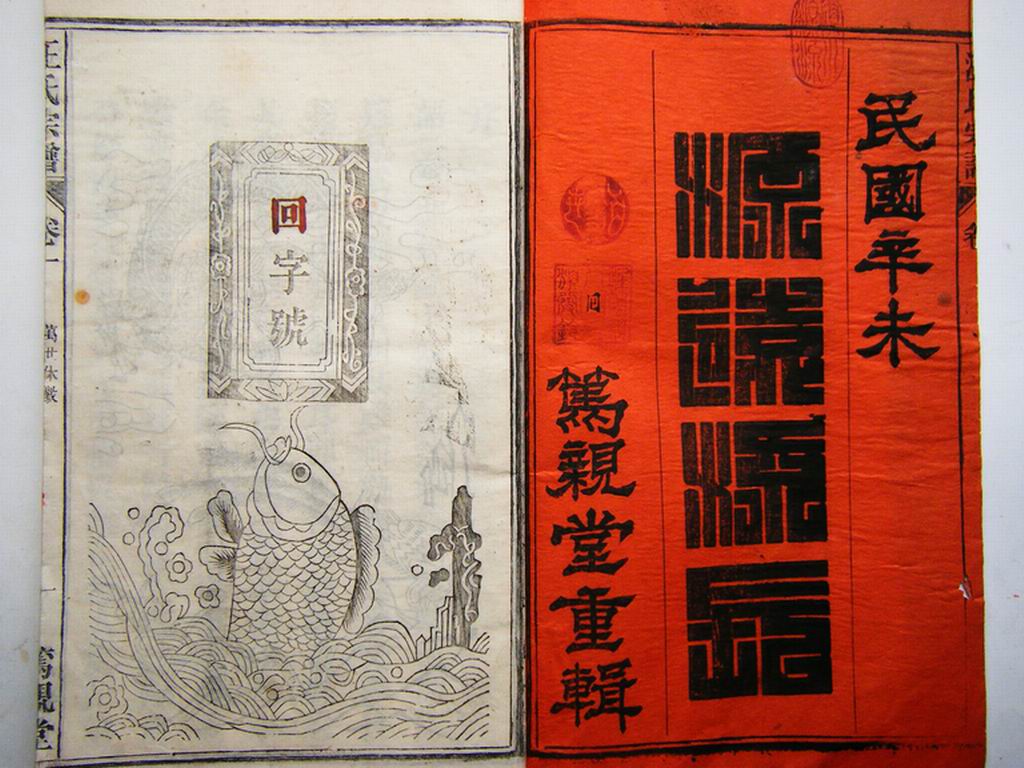 民國辛未
源遠流長
回
篤親堂重輯
回字號
氏宗譜
卷一
一
篤親堂